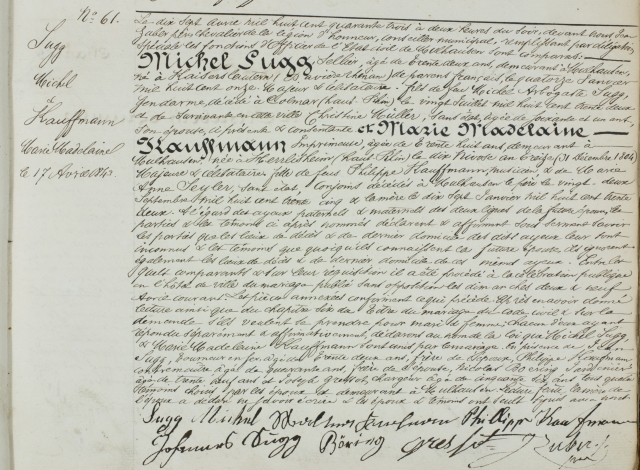 No. 61.
Sugg
Michel
&
Kauffmann
Marie Madelaine
le 17 Avril 1843.
Le dix Sept avril mil huit cent quarante trois à deux heures du soir, devant nous Jean
Zuber père chevalier de la légion d'honneur, conseiller municipal, remplissant par délégation
Spéciale les fonctions d'Officier de l'Etat civil de Mulhausen sont comparus:
Michel Sugg Sellier, âgé de trente deux ans, demeurant à Mulhausen,
né à Kaiserslautern (Bavière rhénane) de parens français, le quatorze Janvier
mil huit cent onze. Majeur & célibataire. fils de feu Michel Arbogaste Sugg,
Gendarme, décédé à Colmar (haut Rhin) le vingt mil huit cent trente deux
& de Survivante en cette ville Christine Müller, Sans état, âgée de soixante et un ans,
Son épouse, ci présente & consentante et Marie Madelaine
Kauffmann Imprimeuse, âgée de trente huit ans, demeurant à
Mulhausen, née à Herrlisheim (haut Rhin) le dix Nivôse an treize (31 décembre 1804)
Majeure & célibataire fille de feus Philippe Kauffmann, musicien & de Marie
Anne Seyler, Sans état, conjoints décédés à Mulhausen le père le vingt-deux
Septembre mil huit cent trente cinq & la mère le dix Sept Janvier mil huit cent trente
deux. A l'égard des ayeux paternels & maternels des deux lignes de la future épouse, les
parties & les témoins ci après nommés déclarent & affirment sous serment savoir:
les parties que les lieux de décès & de dernier domicile des dits ayeux leur sont
inconnus & les témoins que quoiqu'ils connaissent la future épouse, ils ignorent
également les lieux de décès & de dernier domicile de ces mêmes ayeux. Entre les
quels comparants & sur leur réquisition il a été procédé à la célébration publique
en l'hôtel de ville du mariage publié sans opposition les dimanches deux & neuf
Avril courant. Les pièces annexées confirment ce qui précède. Après en avoir donné
lecture ainsi que du chapitre six du titre du mariage du code civil & sur la
demande s'ils veulent se prendre pour mari & femme, chacun d'eux ayant
répondu séparément & affirmativement, déclarons au nom de la loi que Michel Sugg
& Marie Madelaine Kauffmann sont unis par le mariage. En présence de Jean
Sugg, tourneur en fer, âgé de trente deux ans, frère de l'époux, Philippe Kauffmann
âgé de quarante ans, frère de l'épouse, Nicolas Böering
âgé de trente neuf ans et Joseph Gresset, chargeur, âgé de cinquante six ans, tous quatre
témoins choisis par les époux & demeurant à Mulhausen. Lecture faite
Sugg Michel Philipp Kauffmann
Johannes Sugg Böring Gresset J Zuber